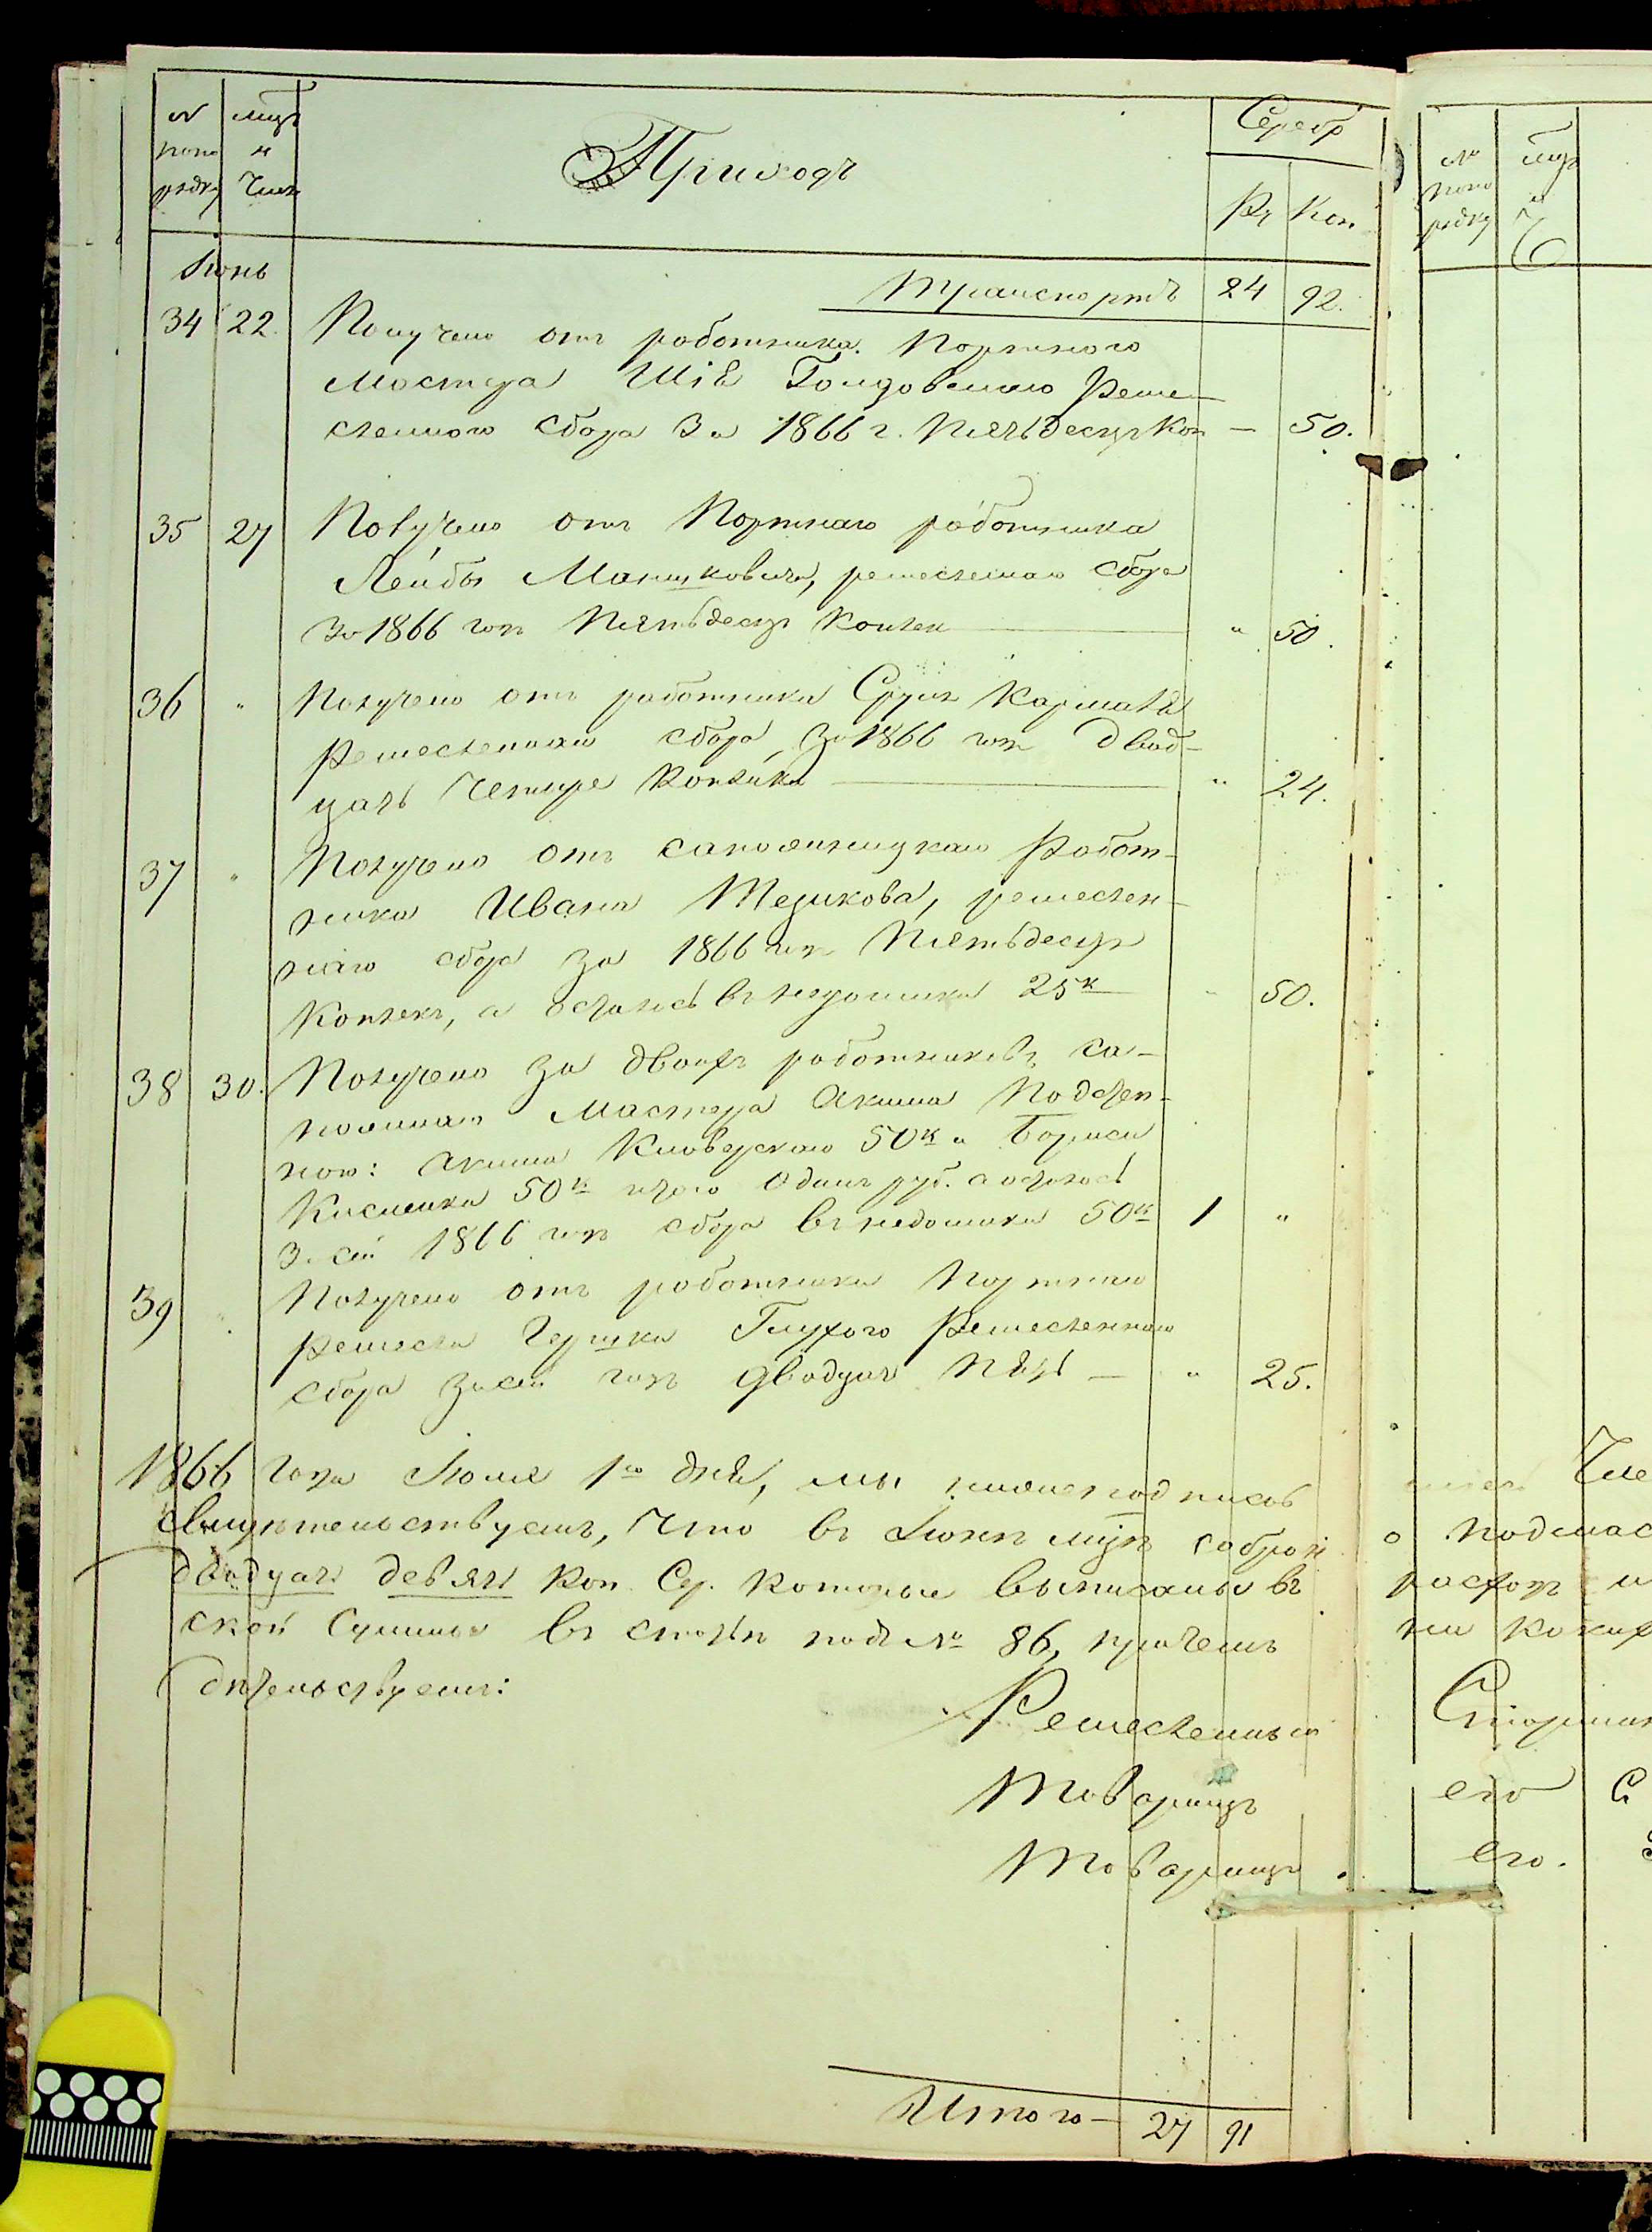 № мцъ
поло и
рядку Числ
Приходъ
Серебр
Ру Коп.
Іюнь
Транспортъ 24 92.
34 22. Получено отъ работника Портного
Мастера Шіи Голдовскаго Ремес-
леннаго Сбора За 1866 г. Пятьдесятъ Коп — 50.
35 27 Получено отъ Портнаго работника
Лейбы Манушковича, ремесленнаго сбора
За 1866 годъ Пятьдесятъ Копѣек " 50.
36 " Получено отъ работника Сруля
Ремесленнаго сбора За 1866 годъ Двад-
цать Четыре Копѣйки " 24.
37 " Получено отъ сапожницкаго Работ-
ника Ивана ремеслен-
наго сбора за 1866 годъ Пятьдесятъ
Копѣекъ, а осталось въ недоимки 25к " 50.
38 30. Получено за двоихъ работниковъ са-
пожнаго Мастера Акима
Акима 50к и Бориса
50к итого Одинъ руб. а осталось
За сей 1866 годъ сбора въ недоимки 50к 1 "
39 " Получено отъ работника Портнаго
Ремесла Гершки Глухого Ремесленнаго
сбора за сей годъ двадцать пять — " 25.
1866 года Іюля 1го дня, мы нижеподписав
свидѣтельствуемъ, что въ Іюнѣ мцѣ собран
двадцать девять Коп. Сер. которые выписаны въ
ской Суммы въ статьѣ подъ № 86, причемъ
дѣтельствуемъ:
Ремесленный
Товарищъ
Товарищъ
Итого — 27 91
№ мцъ
поло и
рядку Ч
Чле
о подмас
расход и
ни каких
Старшин
его С
его.